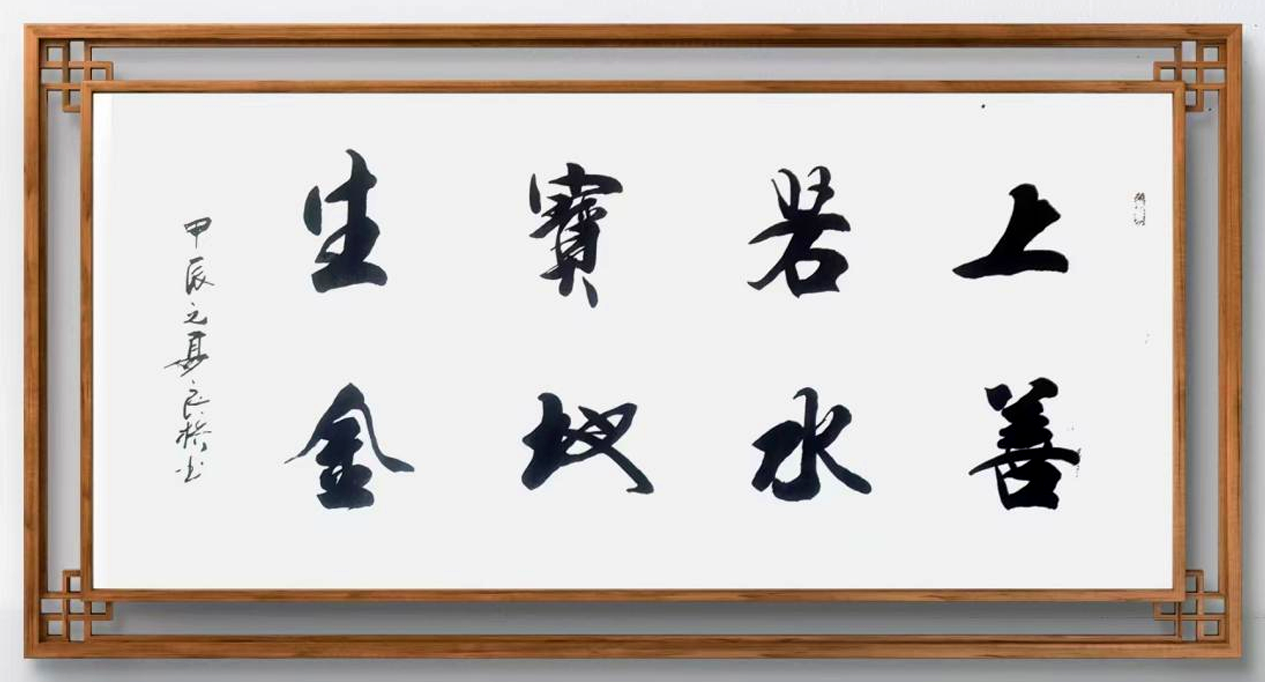 上善
若水
寶地
生金
甲辰之夏良书